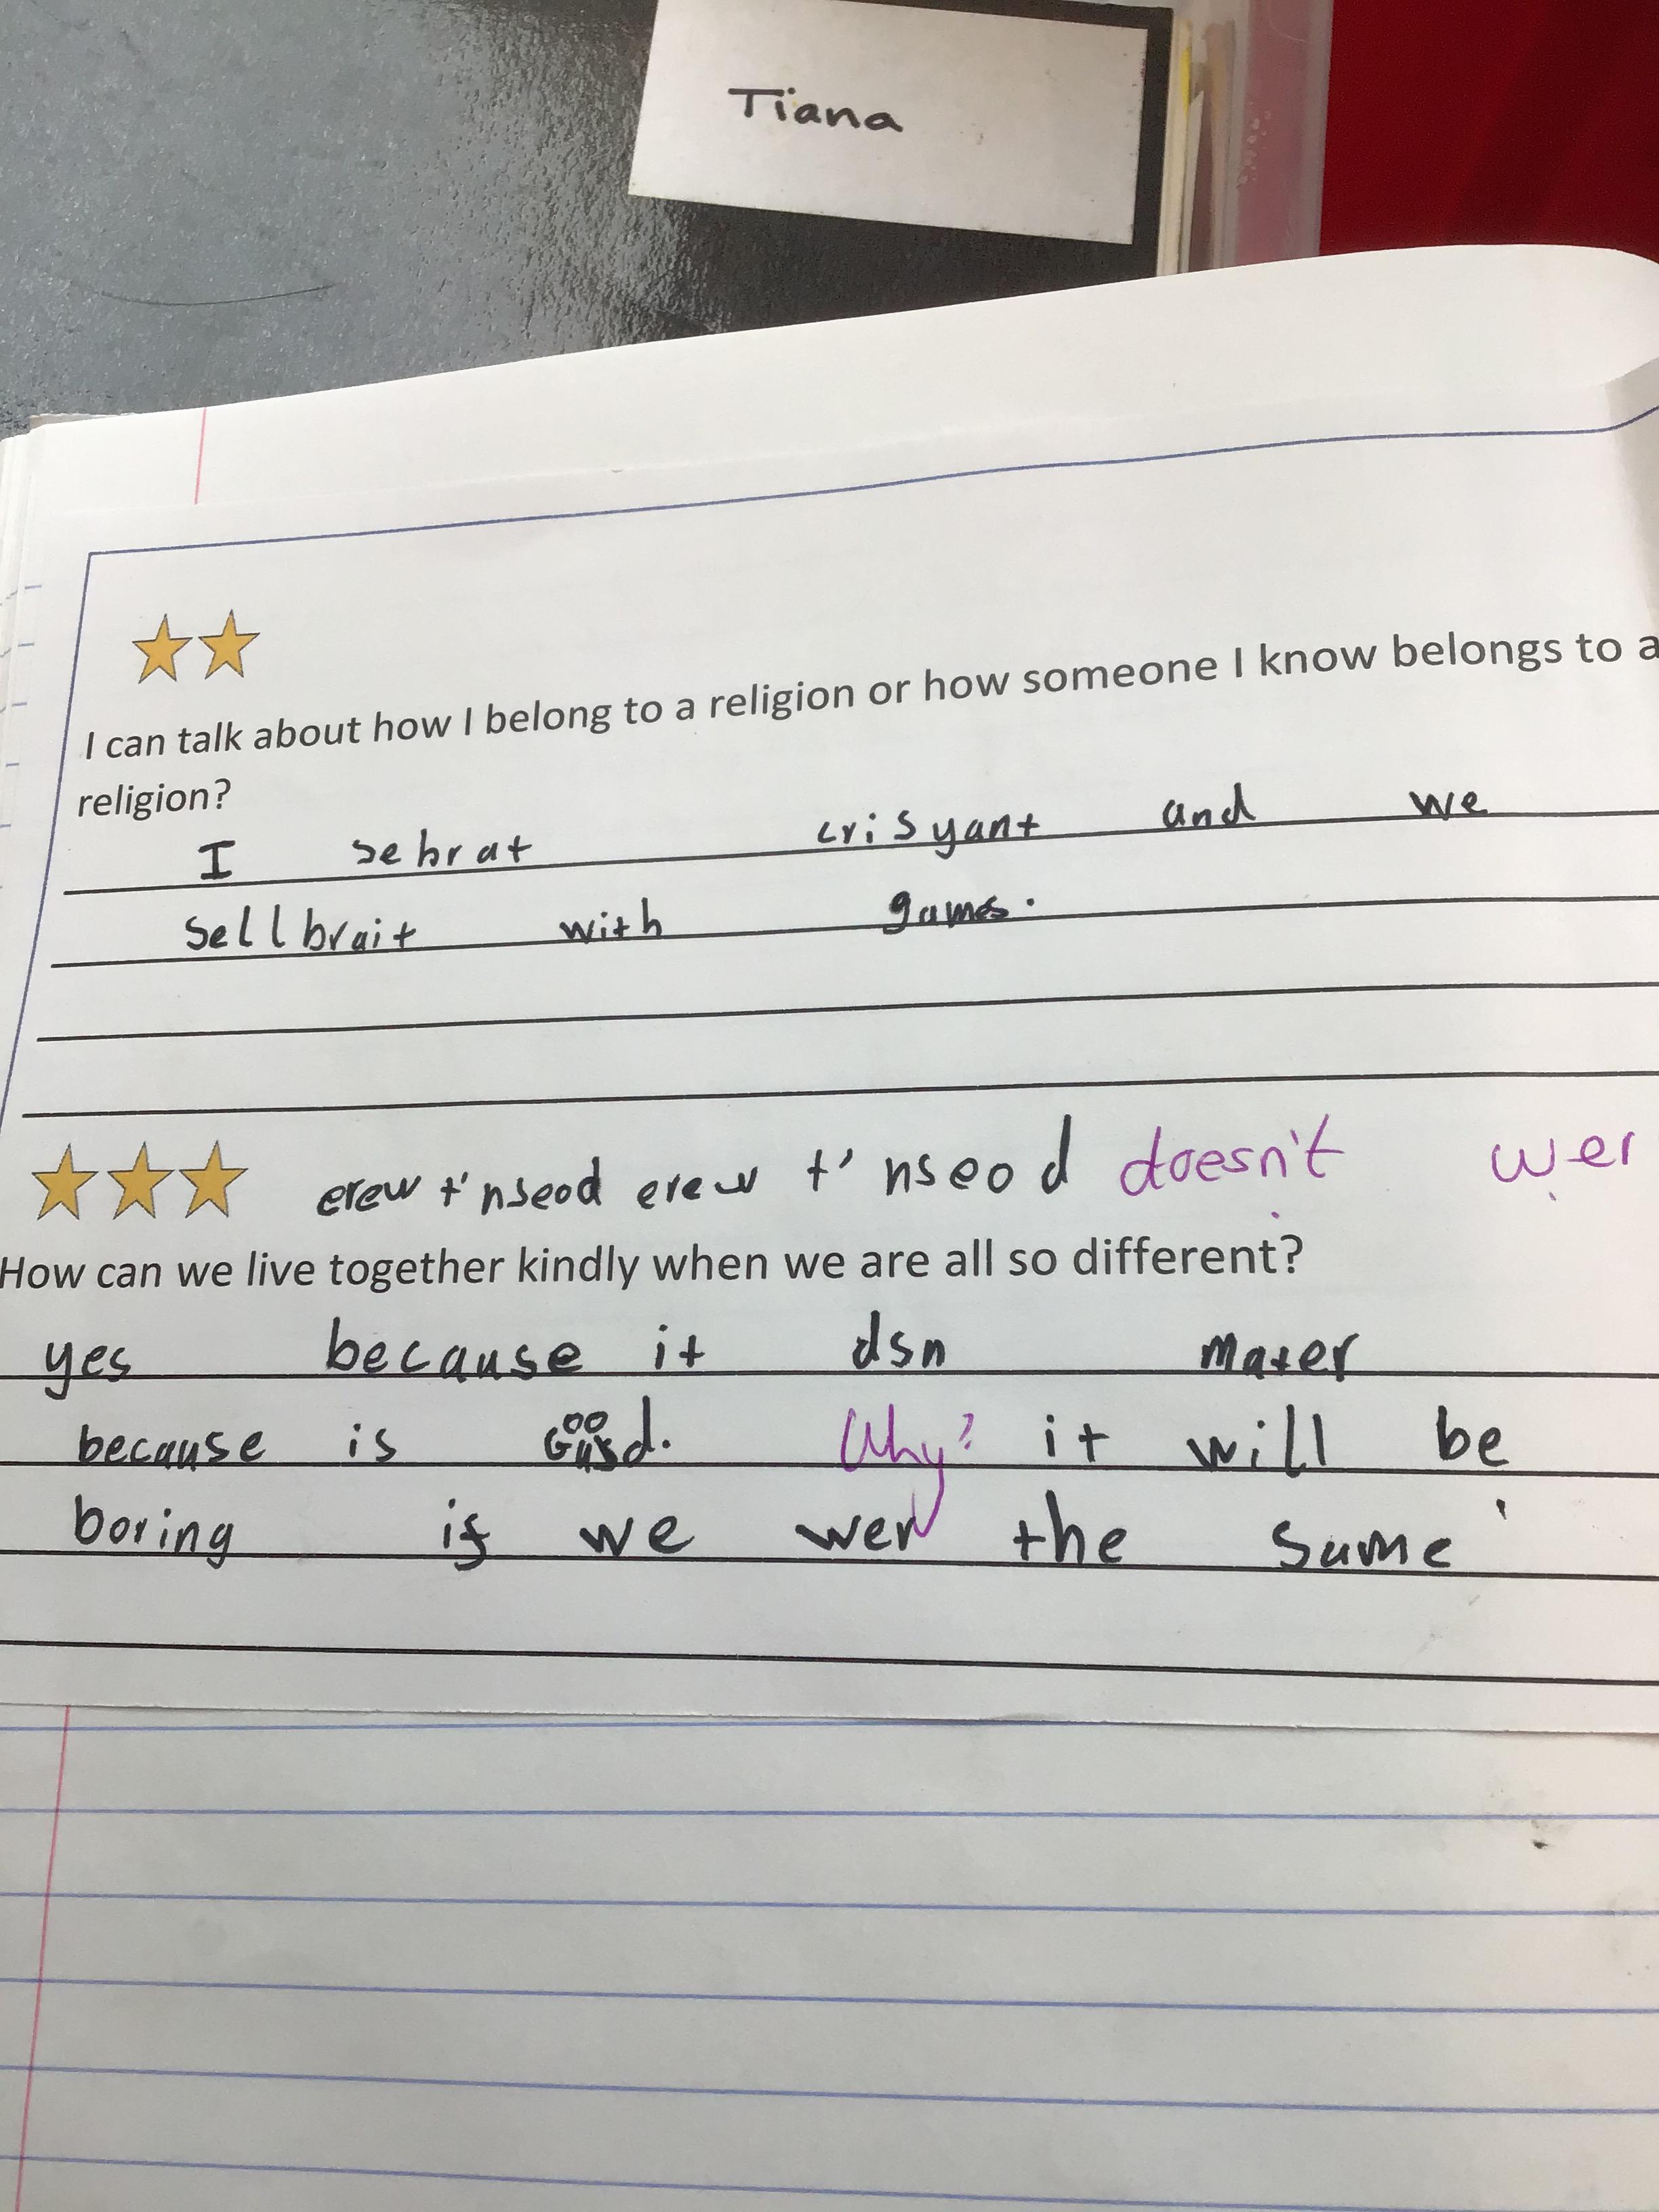 Tiana
I can talk about how I belong to a religion or how someone I know belongs to a
religion?
I sebrat crisyant and we
Sellbrait with games.
erew t'nseod erew t'nseod doesn't wer
How can we live together kindly when we are all so different?
yes because it dsn mater
because is Good. Why? it will be
boring if we wer the same